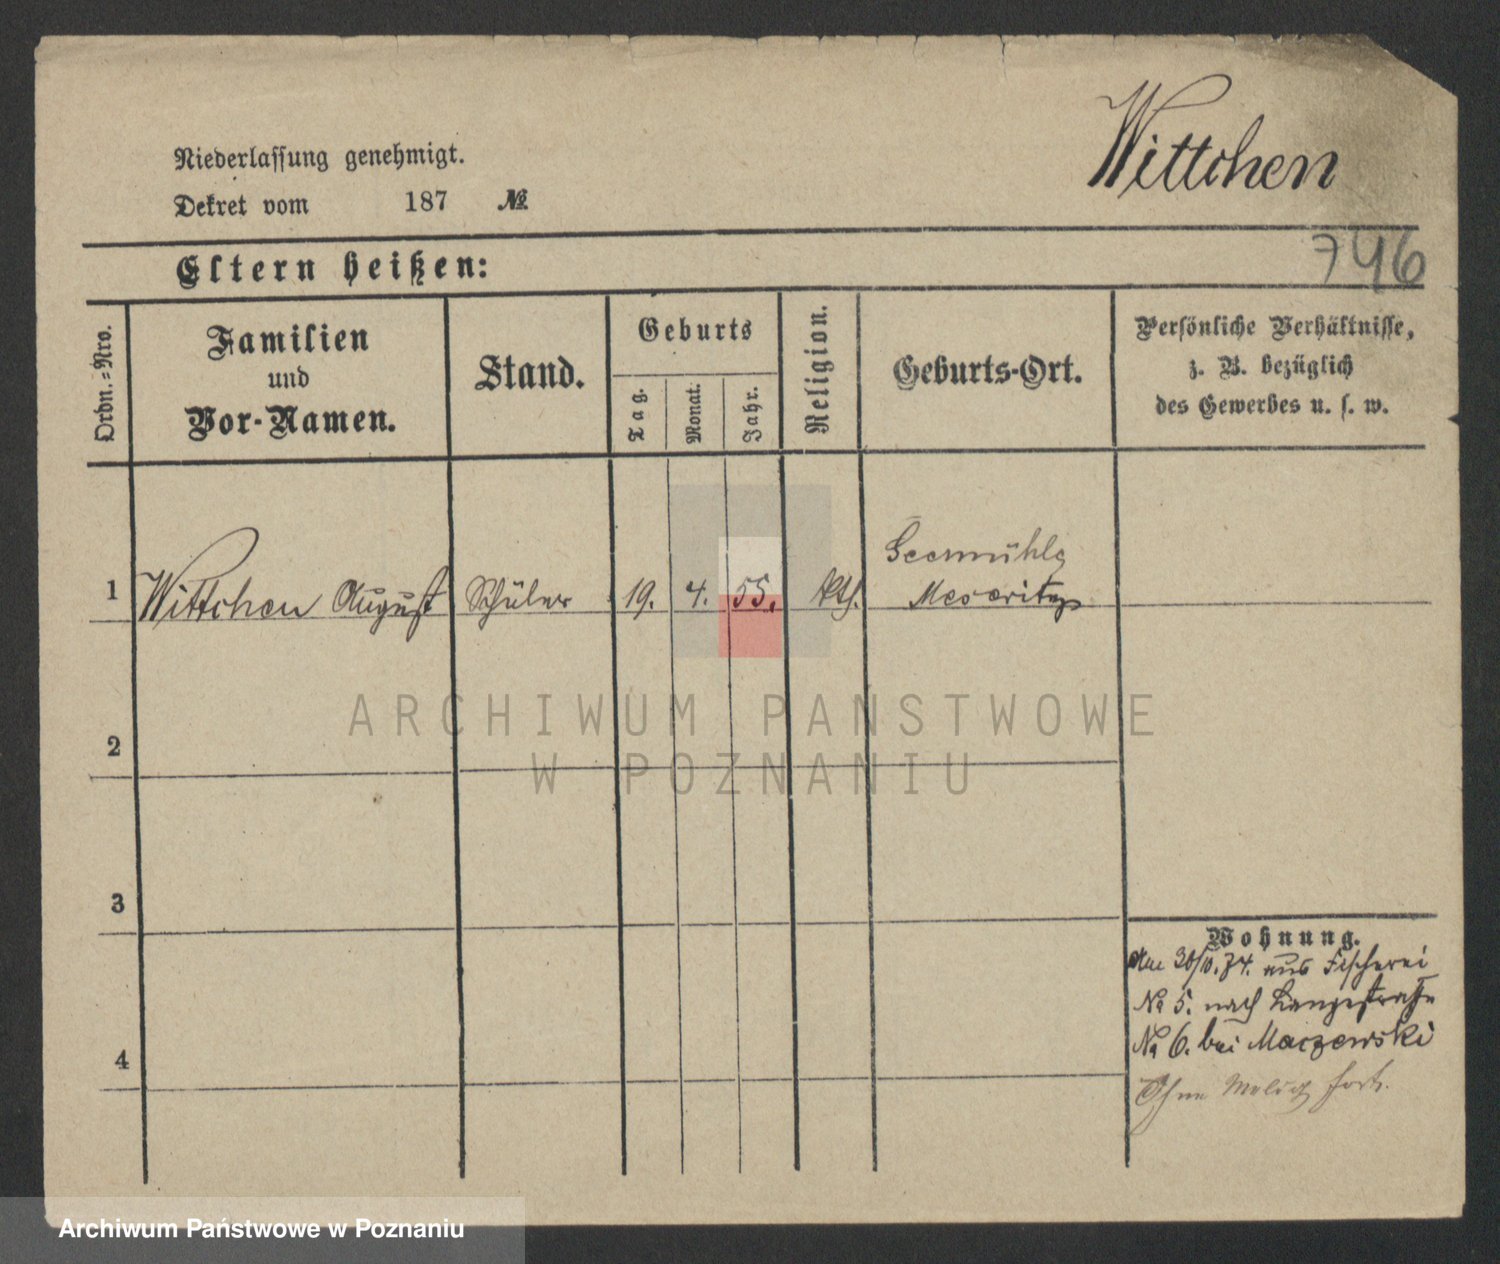 Wittchen
Niederlassung genehmigt.
Dekret vom 187 №
746
Eltern heißen:
Ordn.-Nro.
Familien
und
Vor-Namen.
Stand.
Geburts
Tag.
Monat.
Jahr.
Religion.
Geburts-Ort.
Persönliche Verhältnisse,
z. B. bezüglich
des Gewerbes u. s. w.
Seemühle
1 Wittchen August Schüler 19. 4. 55. kth. Meseritz
ARCHIWUM PAŃSTWOWE
W POZNANIU
2
3
4
Wohnung.
Am 30/10. 74. aus Fischerei
№ 5. nach Langestraße
№ 6. bei Maczewski
Ohne Meldg fort.
Archiwum Państwowe w Poznaniu